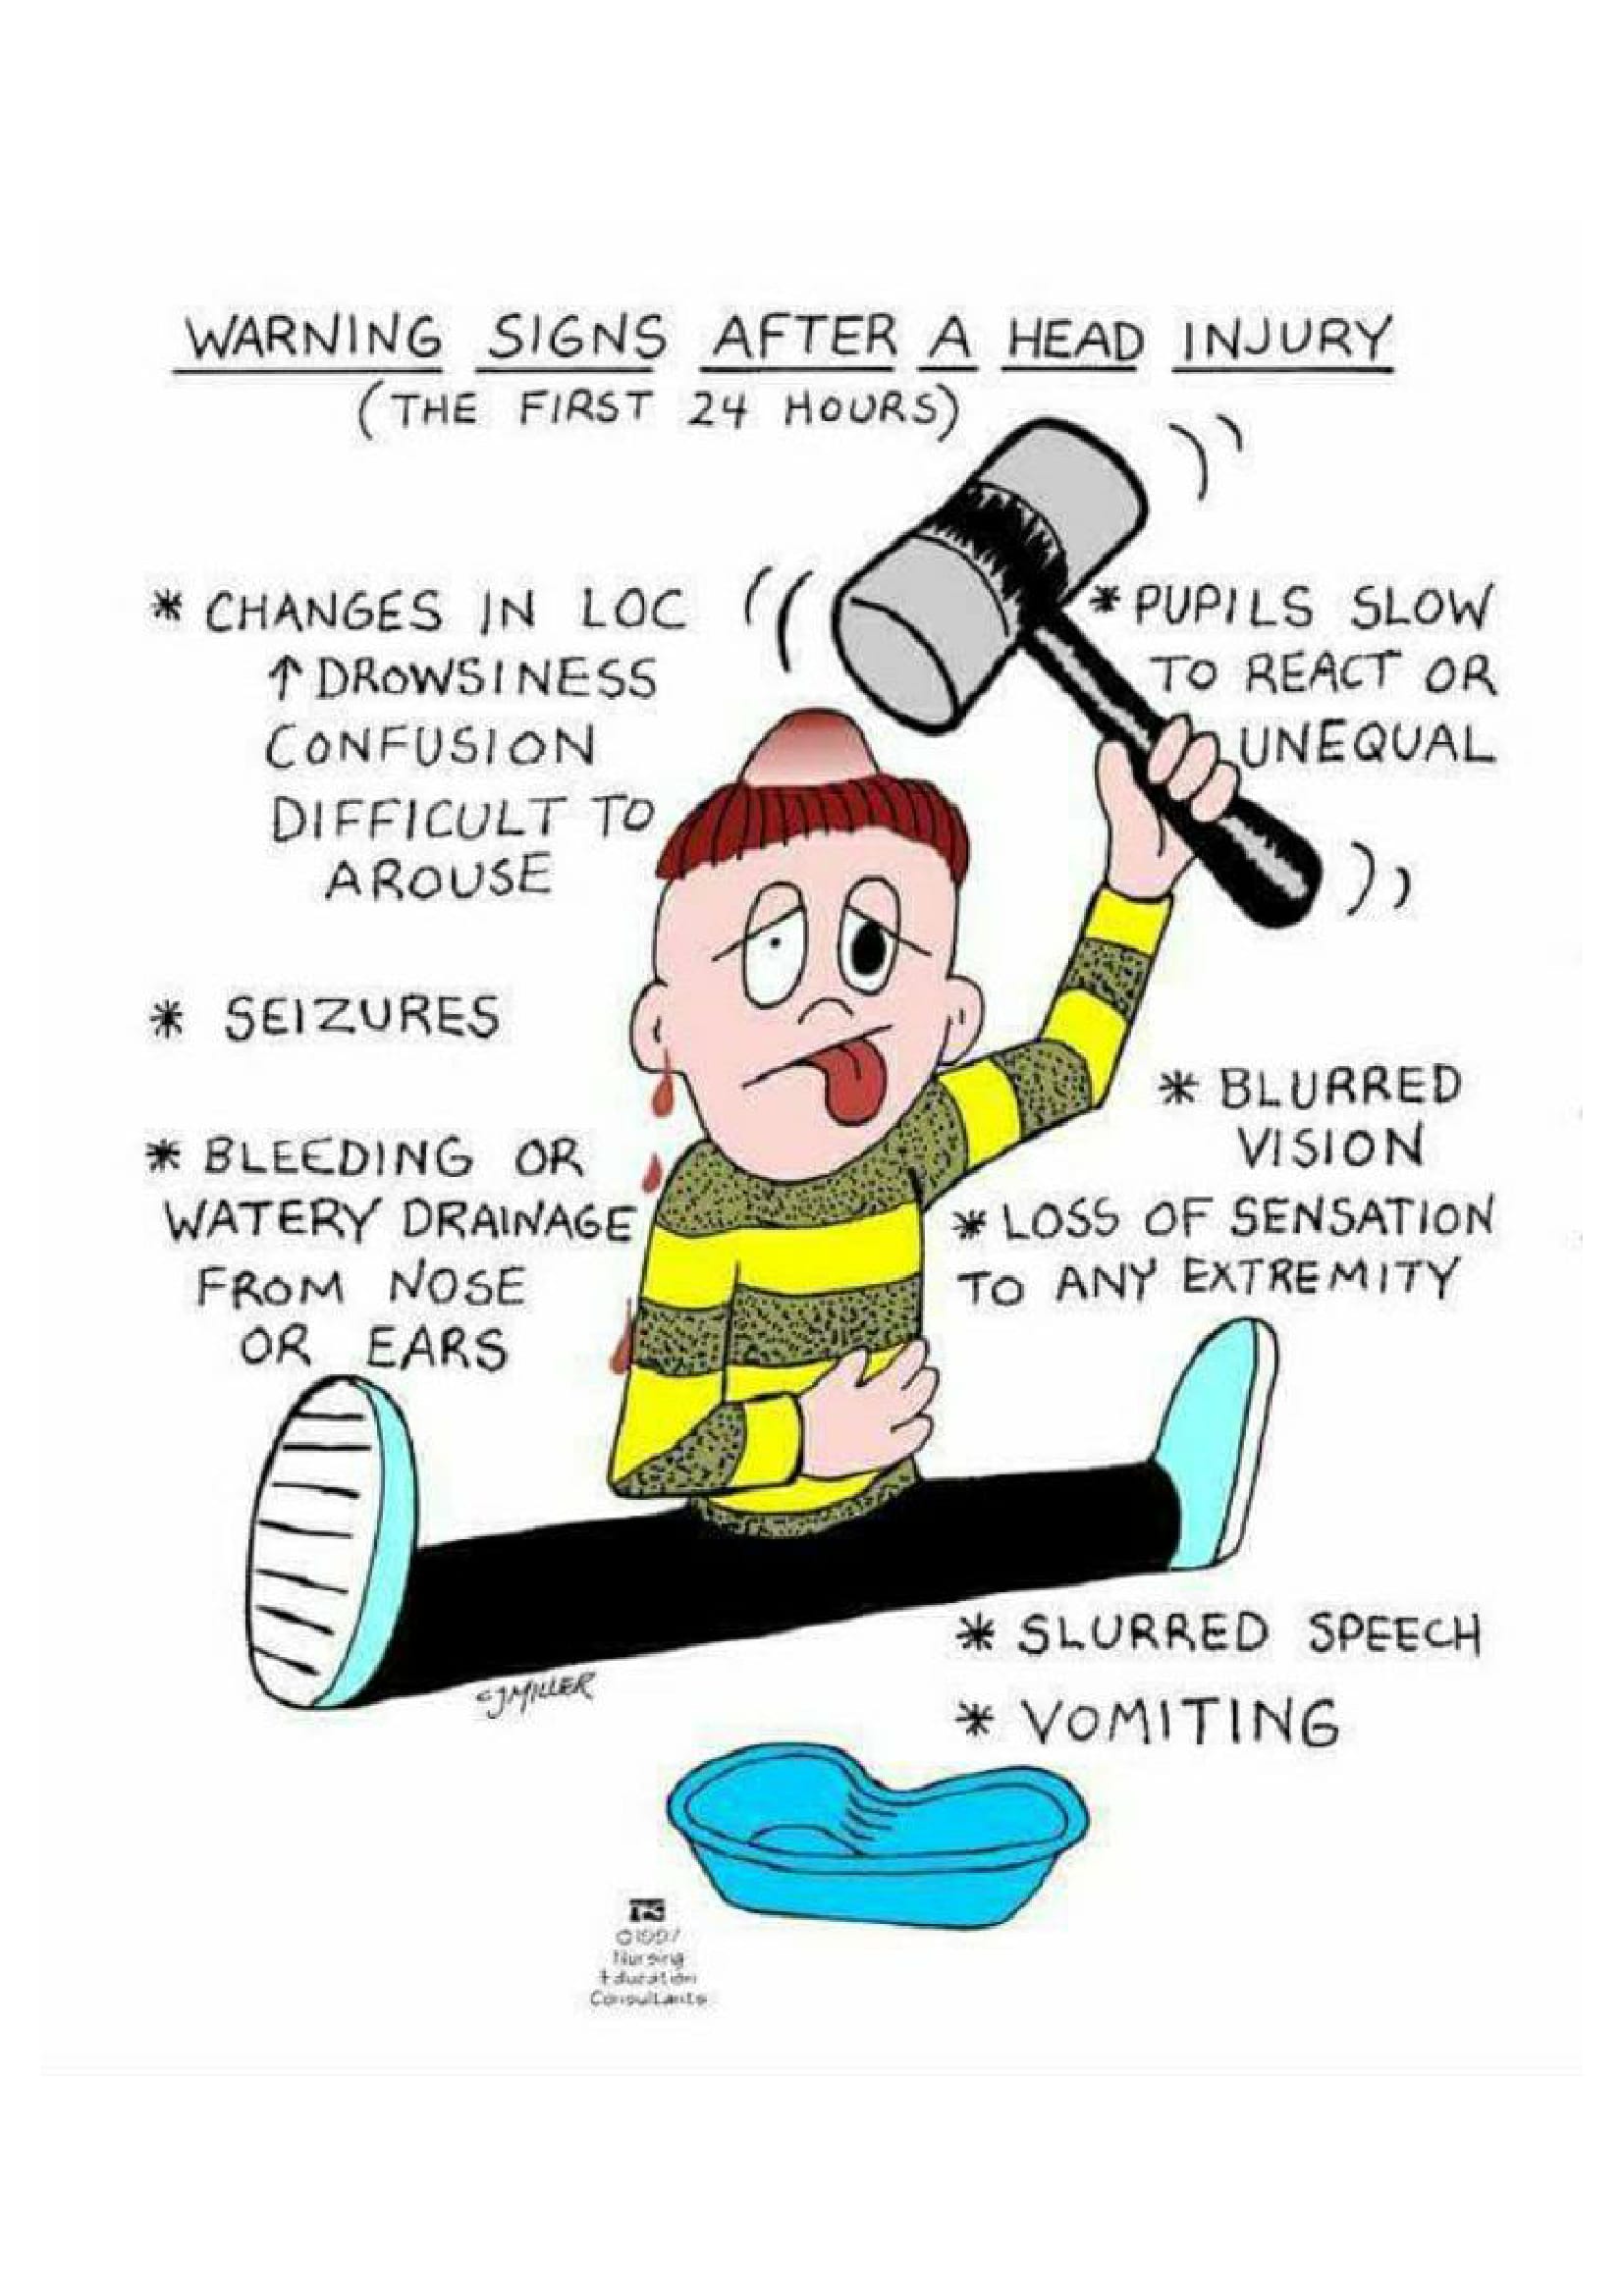 WARNING SIGNS AFTER A HEAD INJURY
(THE FIRST 24 HOURS)
* CHANGES IN LOC
↑ DROWSINESS
CONFUSION
DIFFICULT TO
AROUSE
* PUPILS SLOW
TO REACT OR
UNEQUAL
* SEIZURES
* BLEEDING OR
WATERY DRAINAGE
FROM NOSE
OR EARS
* BLURRED
VISION
* LOSS OF SENSATION
TO ANY EXTREMITY
* SLURRED SPEECH
* VOMITING
CJMILLER
©1997
Nursing
Education
Consultants